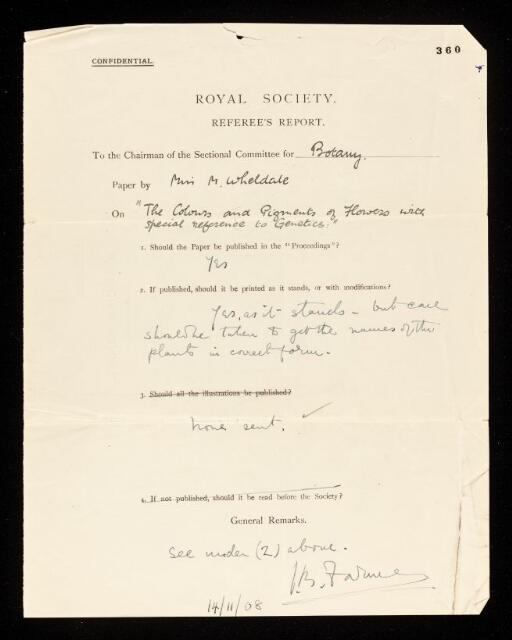 360
CONFIDENTIAL.
ROYAL SOCIETY.
REFEREE'S REPORT.
To the Chairman of the Sectional Committee for Botany.
Paper by Miss M. Wheldale
On "The Colours and Pigments of Flowers with
special reference to Genetics."
1. Should the Paper be published in the "Proceedings"?
Yes
2. If published, should it be printed as it stands, or with modifications?
Yes, as it stands – but care
should be taken to get the names of the
plants in correct form.
3. Should all the illustrations be published?
None sent. ✓
4. If not published, should it be read before the Society?
General Remarks.
See under (2) above.
J.B. Farmer
14/11/08